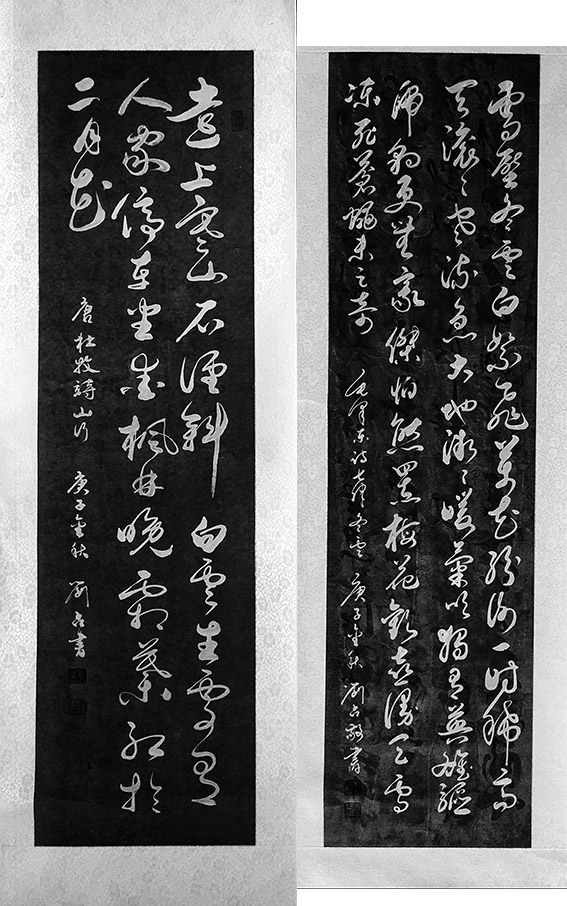 雪壓冬雲白絮飛萬花紛謝一时稀高
天滚々寒流急大地微々暖氣吹獨有英雄驅
虎豹更無豪傑怕熊羆梅花歓喜漫天雪
凍死蒼蠅未足奇
毛泽东诗冬雲 庚子金秋 劉占書
遠上寒山石徑斜 白雲生處有
人家停車坐愛楓林晚霜葉红於
二月花
唐杜牧詩山行 庚子金秋 劉占書